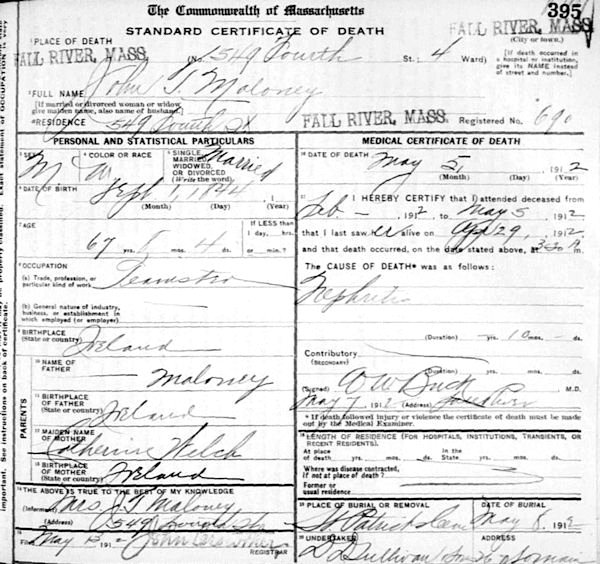 The Commonwealth of Massachusetts
395
STANDARD CERTIFICATE OF DEATH
FALL RIVER, MASS.
(City or town.)
1 PLACE OF DEATH
FALL RIVER, MASS.
(No. 549 Fourth St.; 4 Ward)
[If death occurred in a hospital or institution, give its NAME instead of street and number.]
2 FULL NAME John T. Maloney
[If married or divorced woman or widow, give maiden name, also name of husband.]
RESIDENCE 549 Fourth St
FALL RIVER, MASS. Registered No. 690
PERSONAL AND STATISTICAL PARTICULARS
3 SEX M
4 COLOR OR RACE W
5 SINGLE, MARRIED, WIDOWED, OR DIVORCED (Write the word) Married
6 DATE OF BIRTH Sept 1, 1844, 1
(Month) (Day) (Year)
7 AGE
67 yrs. 8 mos. 4 ds.
If LESS than 1 day, hrs. or min.?
8 OCCUPATION
(a) Trade, profession, or particular kind of work Teamster
(b) General nature of industry, business, or establishment in which employed (or employer)
9 BIRTHPLACE (State or country) Ireland
PARENTS
10 NAME OF FATHER Maloney
11 BIRTHPLACE OF FATHER (State or country) Ireland
12 MAIDEN NAME OF MOTHER Catherine Welch
13 BIRTHPLACE OF MOTHER (State or country) Ireland
14 THE ABOVE IS TRUE TO THE BEST OF MY KNOWLEDGE
(Informant) Mrs. J. T. Maloney
(Address) 549 Fourth St.
15
Filed May 13 191
REGISTRAR
MEDICAL CERTIFICATE OF DEATH
16 DATE OF DEATH May 5, 1912
(Month) (Day) (Year)
17 I HEREBY CERTIFY that I attended deceased from
Feb - 1912, to May 5 1912
that I last saw her alive on Apr 29, 1912
and that death occurred, on the date stated above, at 3:30 A m.
The CAUSE OF DEATH* was as follows:
Nephritis
(Duration) yrs. 10 mos. - ds.
Contributory (SECONDARY)
(Duration) yrs. mos. ds.
(Signed) W W Buck M.D.
May 7, 191 (Address) Fall River
* If death followed injury or violence the certificate of death must be made out by the Medical Examiner.
18 LENGTH OF RESIDENCE (FOR HOSPITALS, INSTITUTIONS, TRANSIENTS, OR RECENT RESIDENTS).
At place of death yrs. mos. ds. In the State yrs. mos. ds.
Where was disease contracted, if not at place of death?
Former or usual residence
19 PLACE OF BURIAL OR REMOVAL St Patricks Cem
DATE OF BURIAL May 8, 1912
20 UNDERTAKER D D Sullivan & Sons
ADDRESS
important. See instructions on back of certificate.